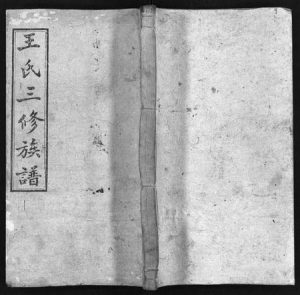 王氏三修族譜